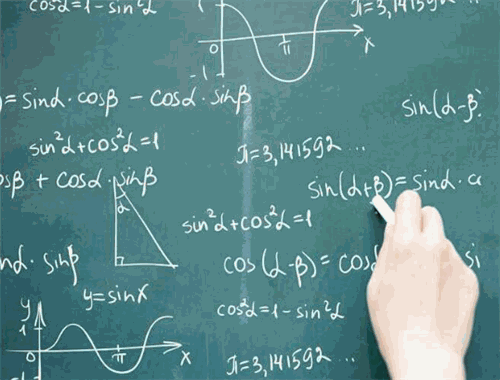 cosα=1-sin²α
1
π=3,141592 ...
0
π
x
-1
)=sinα·cosβ - cosα·sinβ
sin(α-β)
sin²α+cos²α=1
π=3,141592 ...
osβ + cosα·sinβ
sin(α+β)=sinα·c
α
sin²α+cos²α=1
nα·sinβ
cos(α-β)=cosα
si
y=sinx
y
cos²α=1-sin²α
1
0
π
x
π=3,141592 ...